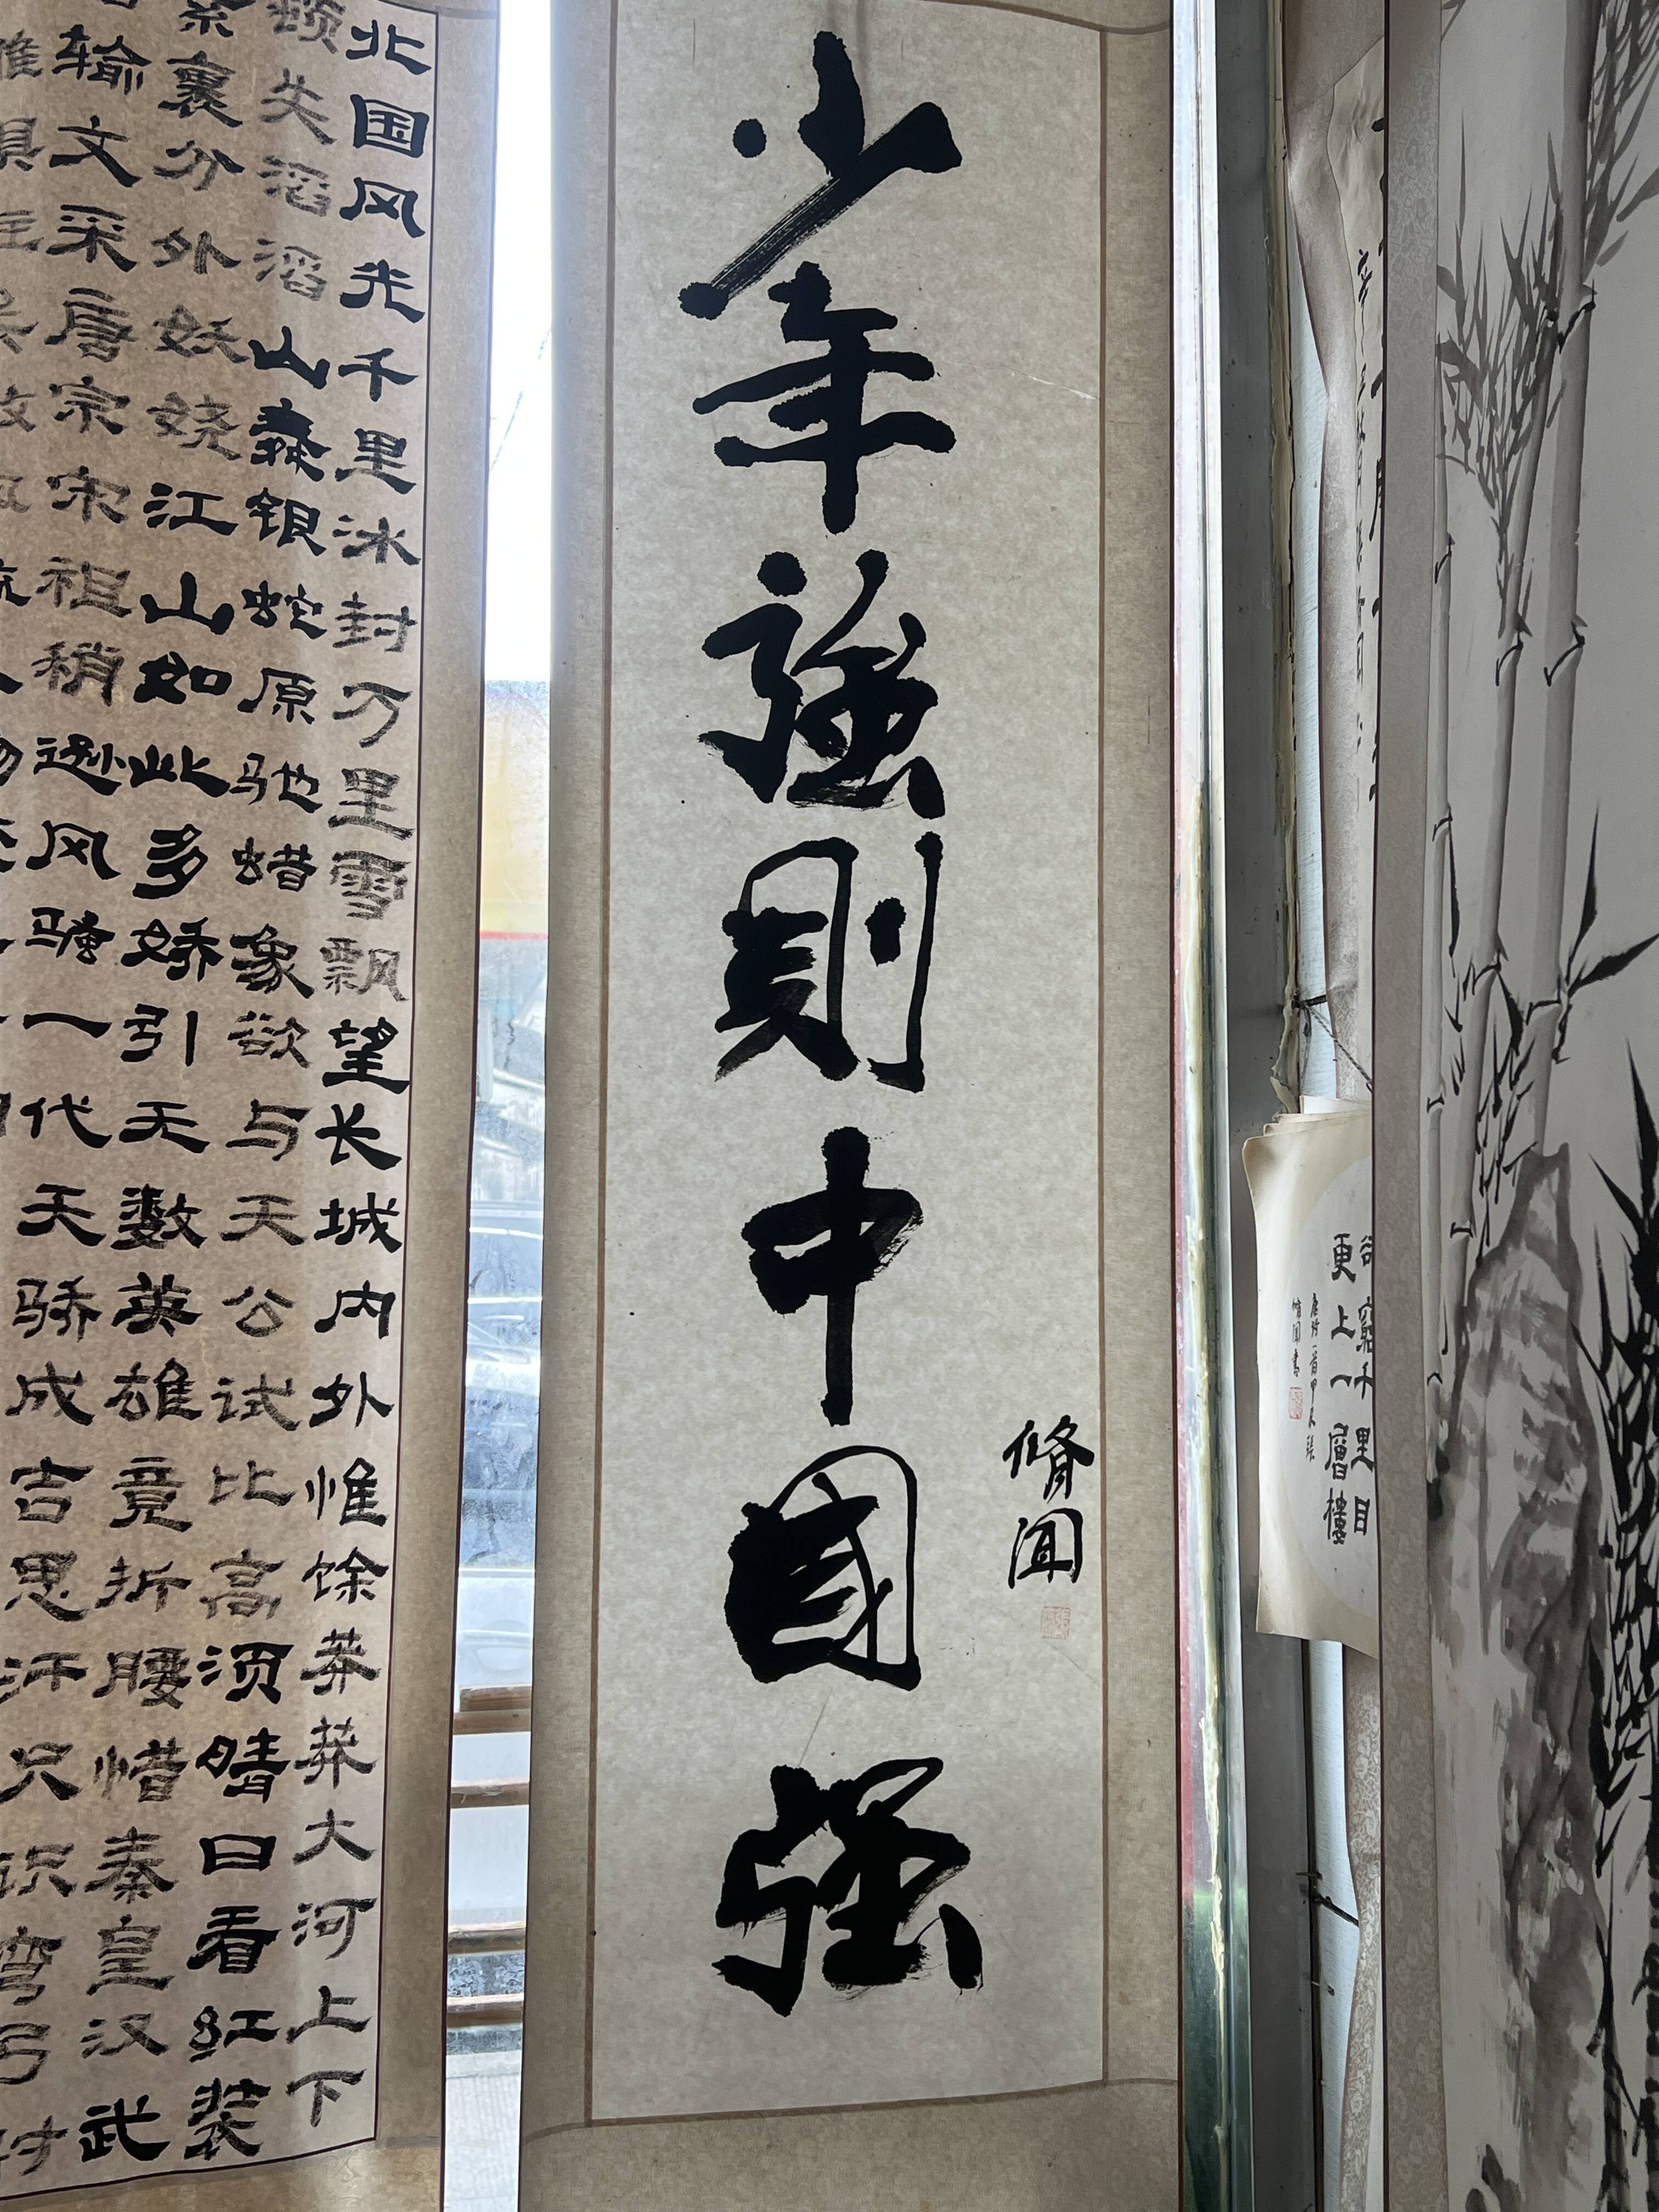 北国风光千里冰封万里雪飘望长城内外惟馀莽莽大河上下
顿失滔滔山舞银蛇原驰蜡象欲与天公试比高须晴日看红装
素裹分外妖娆江山如此多娇引无数英雄竞折腰惜秦皇汉武
输文采唐宗宋祖稍逊风骚一代天骄成吉思汗只识弯弓射
少年強則中國强
脩闻
欲窮千里目
更上一層樓